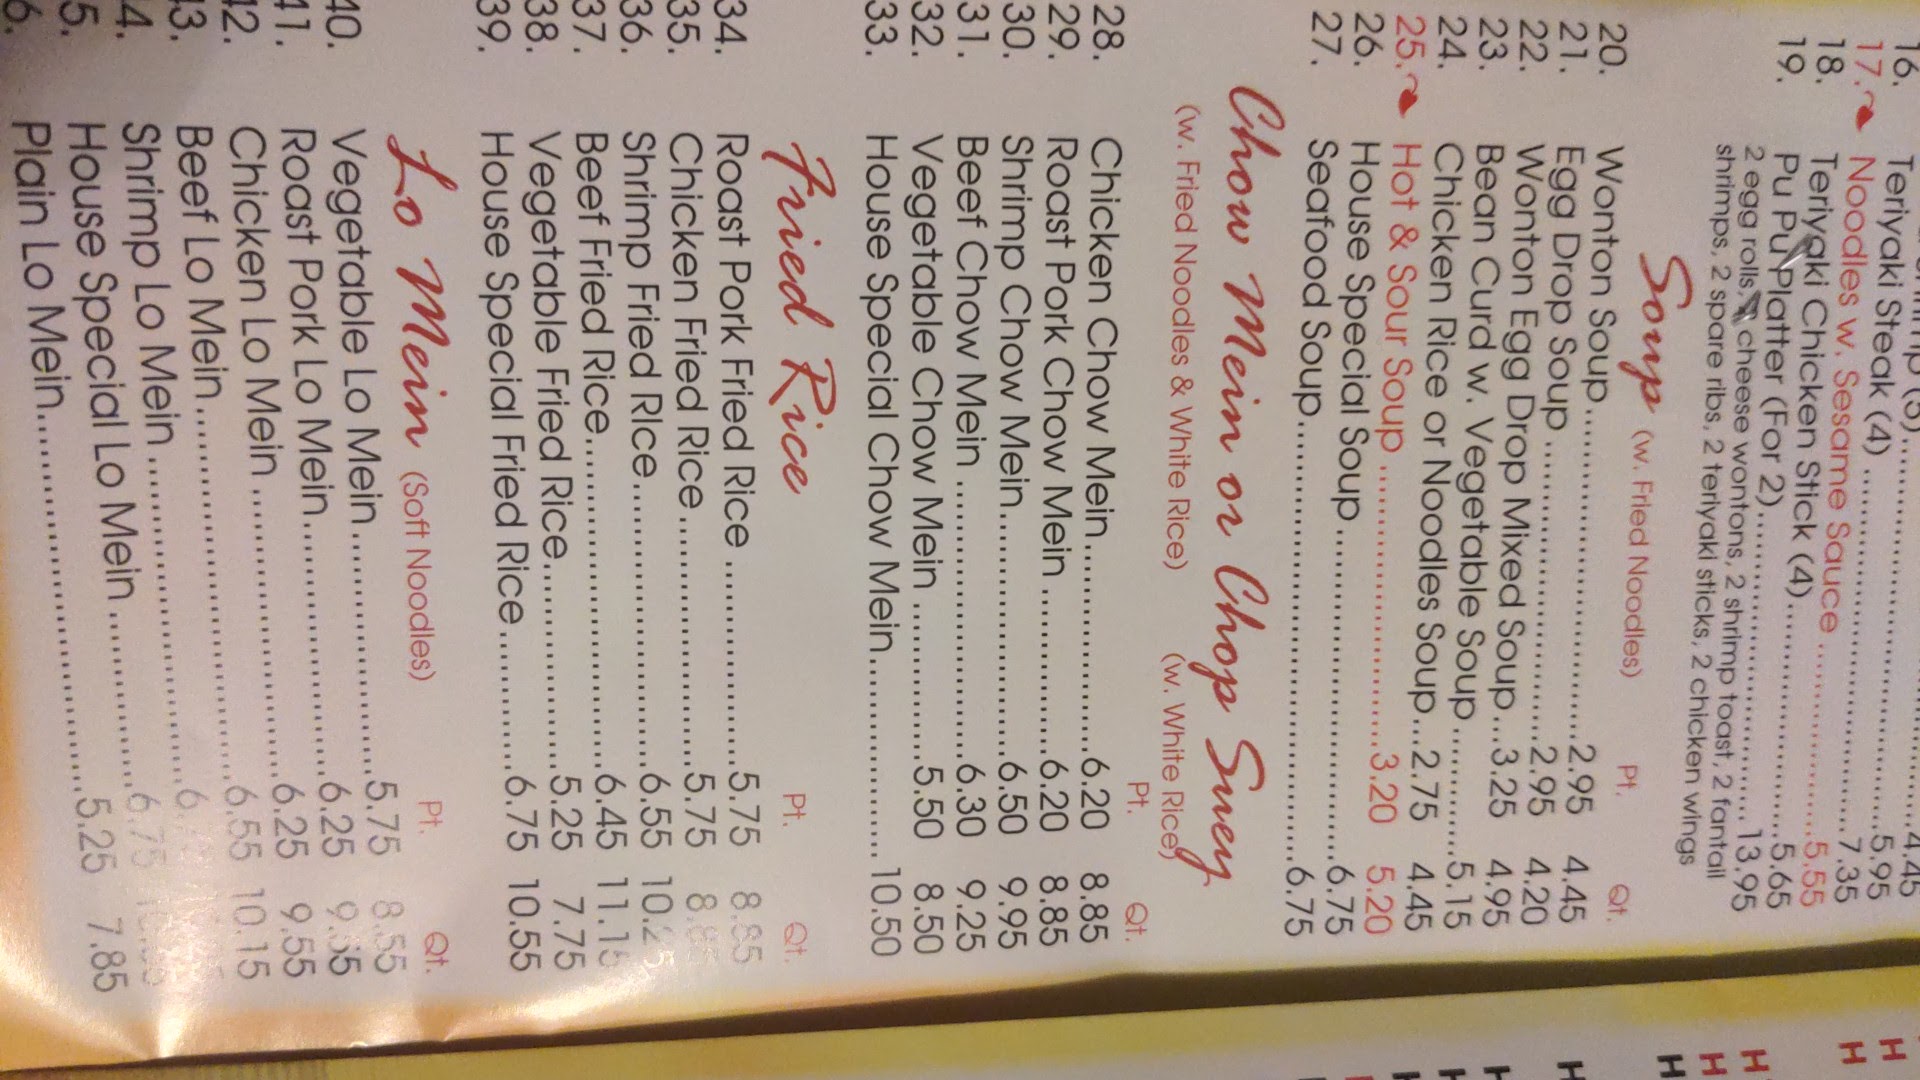 4.45
16. Teriyaki Steak (4) 5.95
17. Noodles w. Sesame Sauce 5.55
18. Teriyaki Chicken Stick (4) 5.65
19. Pu Pu Platter (For 2) 13.95
2 egg rolls, 2 cheese wontons, 2 shrimp toast, 2 fantail
shrimps, 2 spare ribs, 2 teriyaki sticks, 2 chicken wings
Soup (w. Fried Noodles) Pt. Qt.
20. Wonton Soup 2.95 4.45
21. Egg Drop Soup 2.95 4.20
22. Wonton Egg Drop Mixed Soup 3.25 4.95
23. Bean Curd w. Vegetable Soup 5.15
24. Chicken Rice or Noodles Soup 2.75 4.45
25. Hot & Sour Soup 3.20 5.20
26. House Special Soup 6.75
27. Seafood Soup 6.75
Chow Mein or Chop Suey
(w. Fried Noodles & White Rice) (w. White Rice)
Pt. Qt.
28. Chicken Chow Mein 6.20 8.85
29. Roast Pork Chow Mein 6.20 8.85
30. Shrimp Chow Mein 6.50 9.95
31. Beef Chow Mein 6.30 9.25
32. Vegetable Chow Mein 5.50 8.50
33. House Special Chow Mein 10.50
Fried Rice Pt. Qt.
34. Roast Pork Fried Rice 5.75
35. Chicken Fried Rice 5.75
36. Shrimp Fried RIce 6.55
37. Beef Fried Rice 6.45 11.15
38. Vegetable Fried Rice 5.25 7.75
39. House Special Fried Rice 6.75 10.55
Lo Mein (Soft Noodles) Pt. Qt.
40. Vegetable Lo Mein 5.75 8.55
41. Roast Pork Lo Mein 6.25
42. Chicken Lo Mein 6.25 9.55
43. Beef Lo Mein 6.55 10.15
Shrimp Lo Mein
House Special Lo Mein 6.75
Plain Lo Mein 5.25 7.85